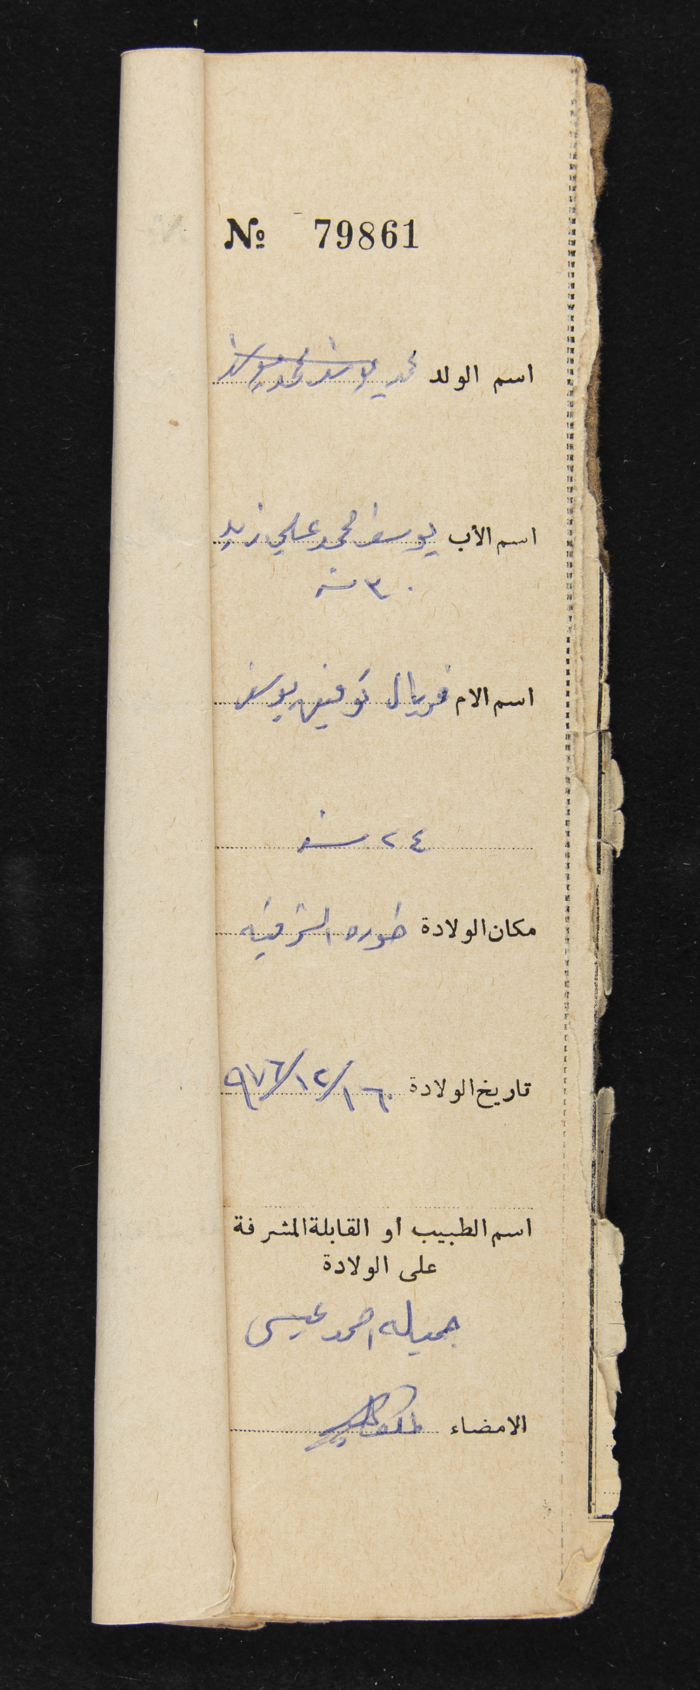 № 79861
اسم الولد محمد يوسف محمد
اسم الأب يوسف محمد علي زيد
٣٠ سنة
اسم الام فريال توفيق يوسف
٢٤ سنة
مكان الولادة طوره الشرقية
تاريخ الولادة ١٦/١٢/٩٧٦
اسم الطبيب او القابلة المشرفة
على الولادة
جميله احمد عيسى
الامضاء